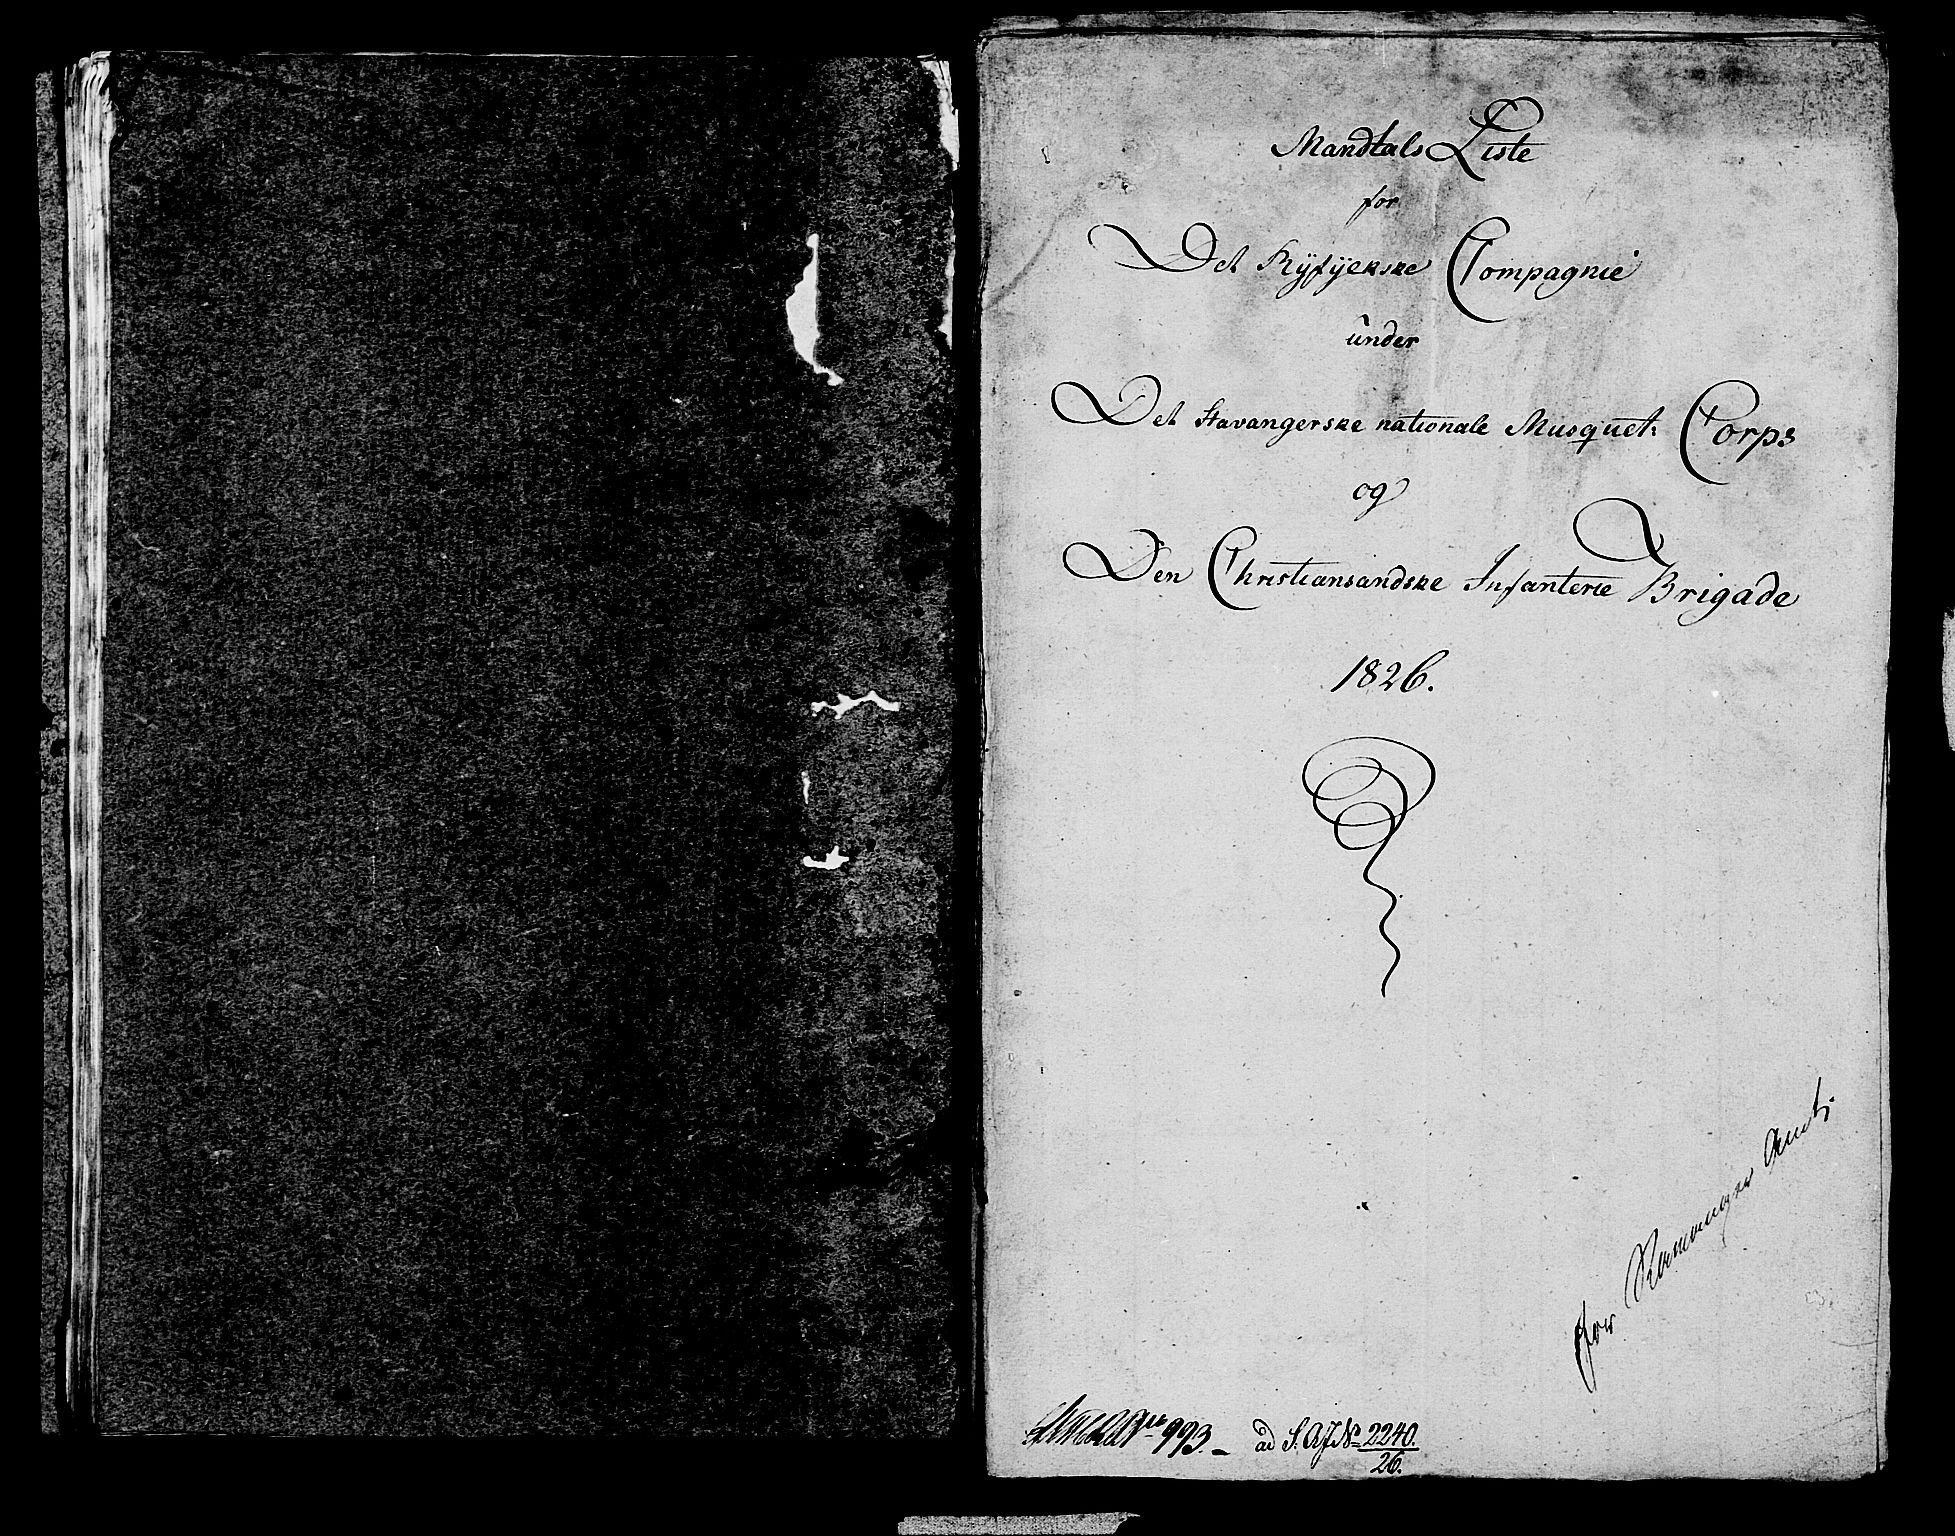 Mandtals Liste
for
Det Ryfylkske Compagnie
ûnder
Det Stavangerske nationale Musquet: Corps
og
Den Christiansandske Infanterie Brigade
1826.
for Stavanger Amt;
993. ad S. A J No 2240.
26.